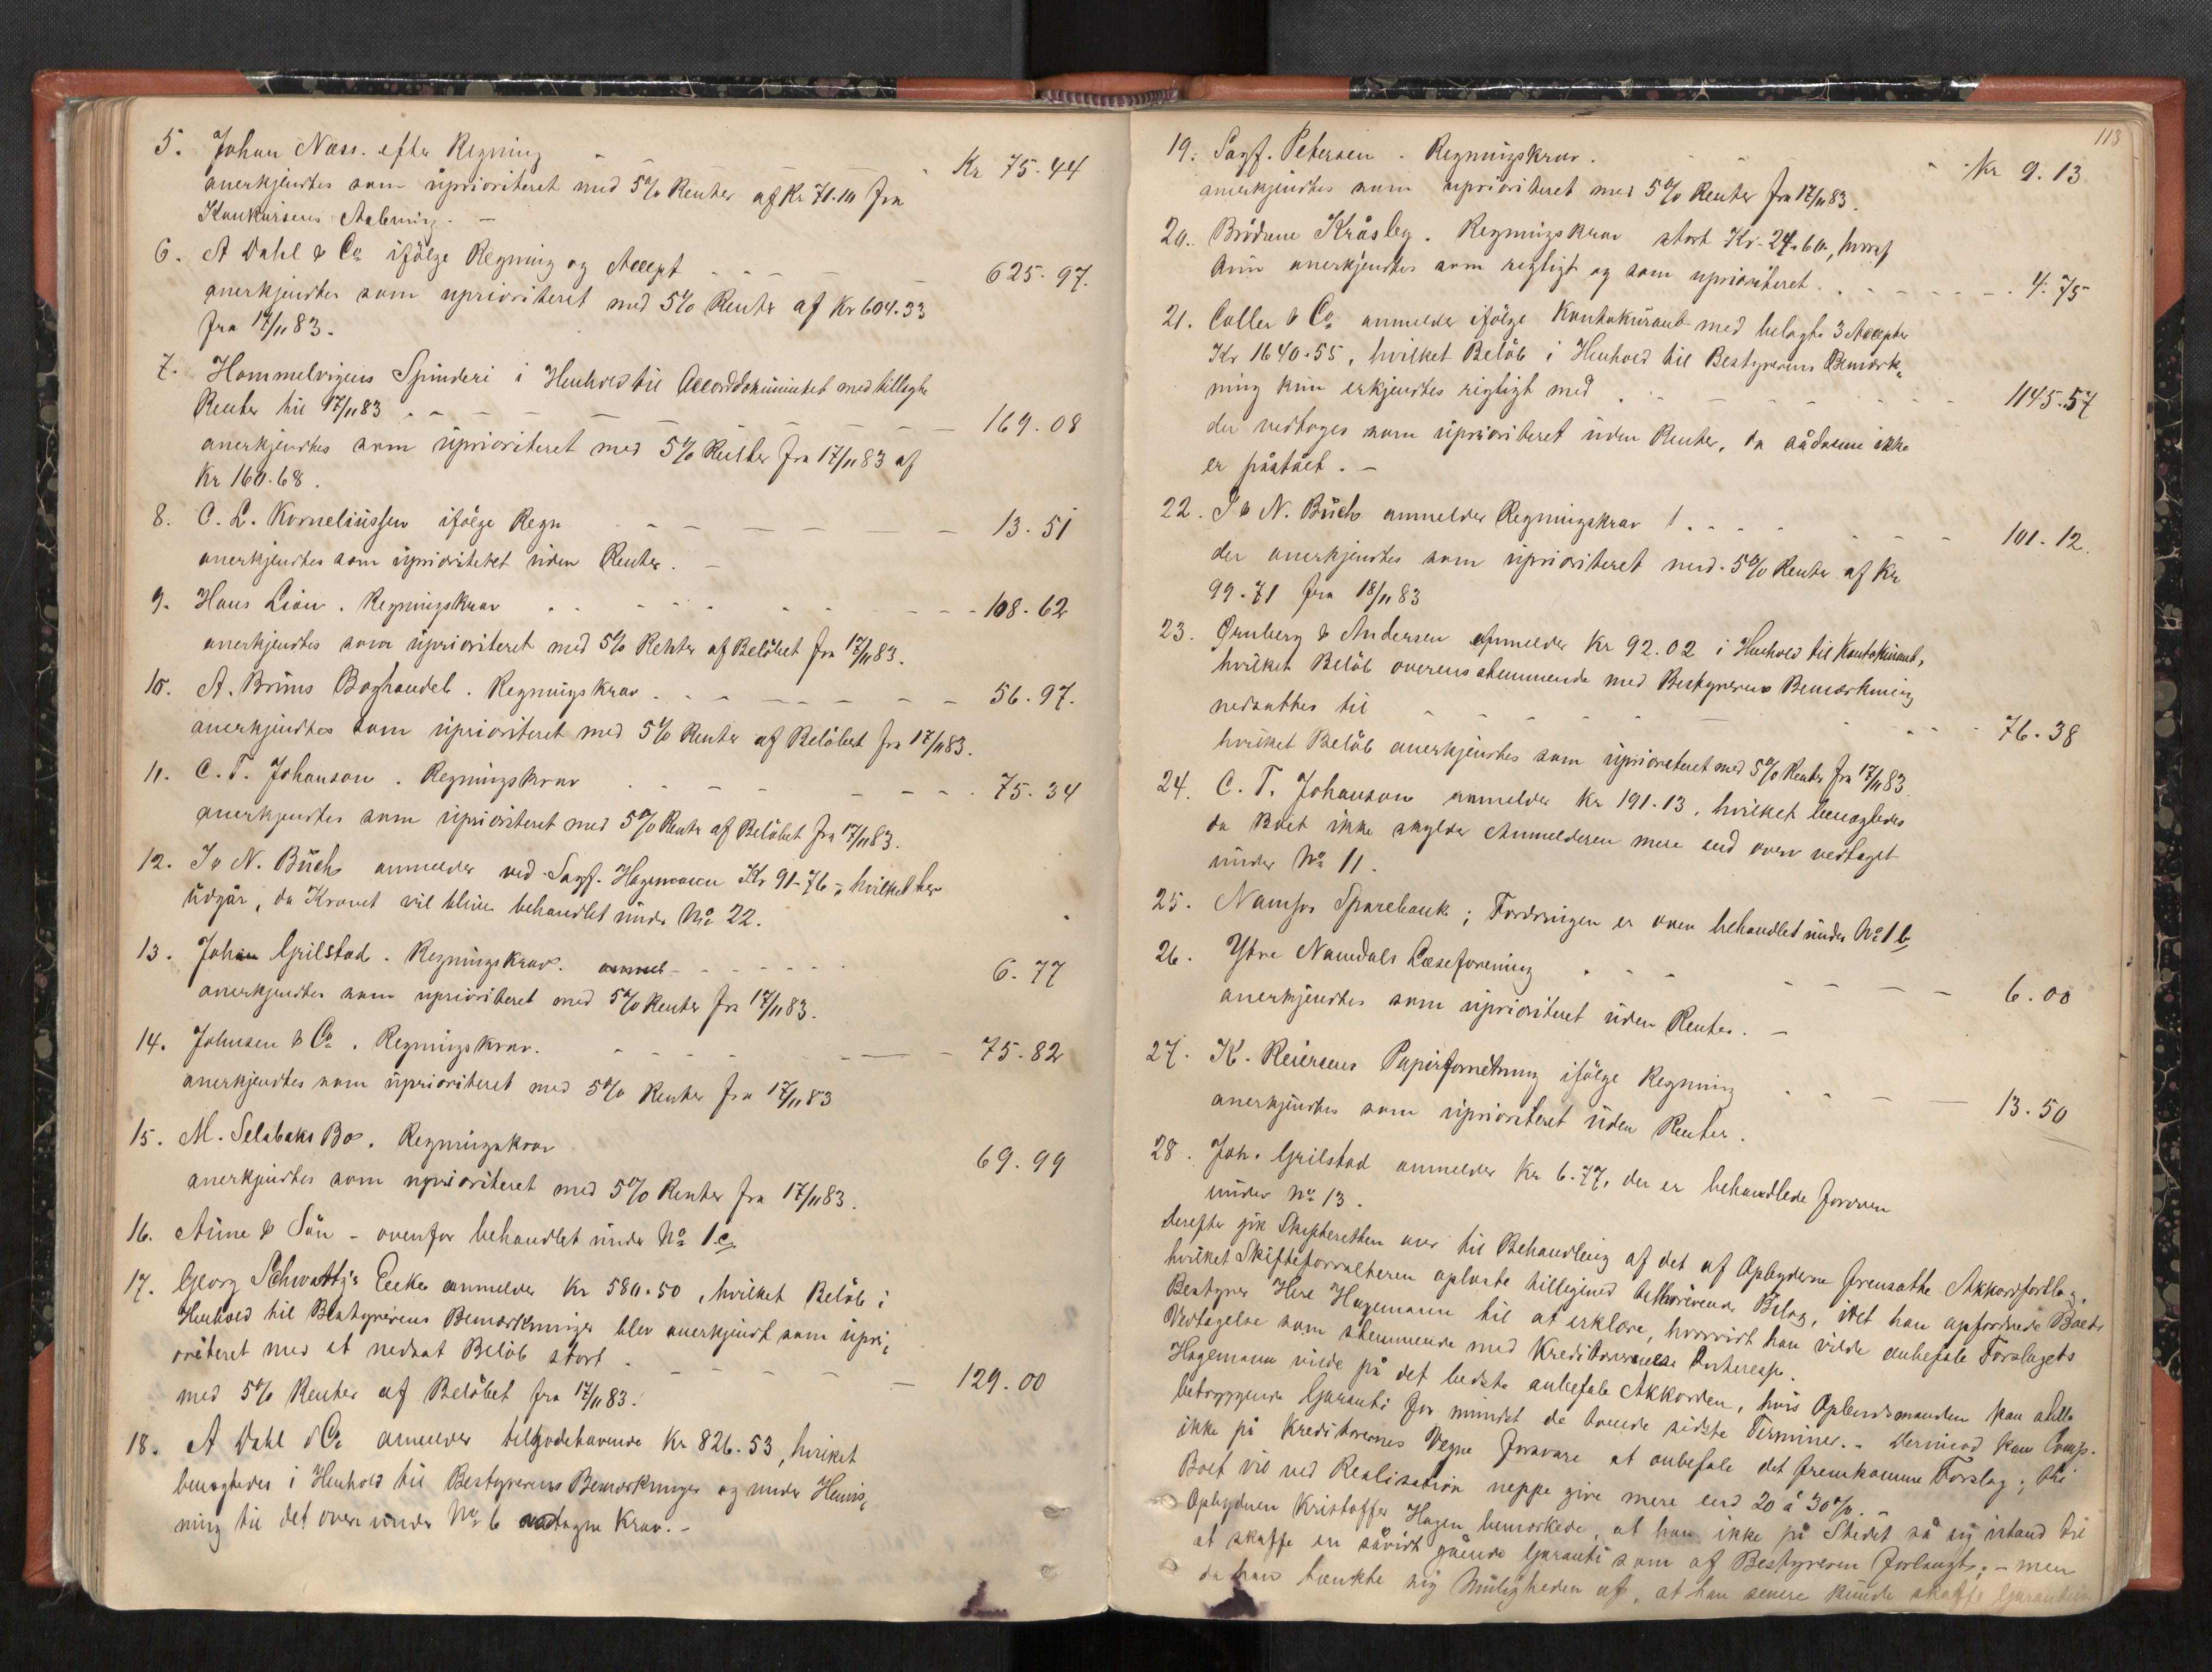 5. Johan Næss. efter Regning - - - - Kr 75.44
anerkjendtes som uprioriteret med 5% Renter af Kr 71.10 fra
Konkursens Aabning. -
6. A Dahl & Co ifölge Regning og Accept - - - - 625.97.
anerkjendtes som uprioriteret med 5% Renter af Kr 604.33
fra 17/11 83.
7. Hommelvigens Spinderi i Henhold til Accorddokumentet med tillagte
Renter til 17/11 83 - - - - 169.08
anerkjendtes som uprioriteret med 5% Renter fra 17/11 83 af
Kr 160.68.
8. C. L. Korneliussen ifölge Regn - - - - 13.51
anerkjendtes som uprioriteret uden Renter. -
9. Hans Lian. Regningskrav - - - - 108.62
anerkjendtes som uprioriteret med 5% Renter af Belöbet fra 17/11 83.
10. A. Bruns Boghandel. Regningskrav - - - - 56.97.
anerkjendtes som uprioriteret med 5% Renter af Belöbet fra 17/11 83.
11. C. T. Johanson. Regningskrav - - - - 75.34
anerkjendtes som uprioriteret med 5% Rente af Belöbet fra 17/11 83.
12. I & N. Buch anmelder ved Sagf. Hagemann Kr 91-76 - hvilket her
udgår, da Kravet vil blive behandlet under No 22.
13. Johan Grilstad. Regningskrav. - - - - 6.77
anerkjendtes som uprioriteret med 5% Renter fra 17/11 83.
14. Johnsen & Co. Regningskrav. - - - - 75.82
anerkjendtes som uprioriteret med 5% Renter fra 17/11 83
15. M. Selabaks Bo. Regningskrav 69.99
anerkjendtes som uprioriteret med 5% Renter fra 17/11 83.
16. Aune & Sön - ovenfor behandlet under No 1 c
17. Georg Schwartz's Enke anmelder Kr 580.50, hvilket Belöb i
Henhold til Bestyrerens Bemærkninger blev anerkjendt som upri,
oriteret med et nedsat Belöb stort - - - - 129.00
med 5% Renter af Belöbet fra 17/11 83.
18. A Dahl & Co anmelder tilgodehavende Kr 826.53, hvilket
benægtedes i Henhold til Bestyrerens Bemærkninger og under Henvis,
ning til det oven under No 6 vedtagne Krav. -
113
19. Sagf. Petersen. Regningskrav. - - - - Kr 9.13
anerkjendtes som uprioriteret med 5% Renter fra 17/11 83.
20. Brödrene Kråsbeg. Regningskrav stort Kr. 24.60, hvoraf
kun anerkjendtes som rigtigt og som uprioriteret. - - - - 4.75
21. Coller & Co anmelder ifölge Kontokurant med belagte 3 Accepter
Kr 1640.55, hvilket Belöb i Henhold til Bestyrerens Bemærk„
ning kun erkjendtes rigtigt med - - - - 1145.57
der vedtoges som uprioriteret uden Renter, da sådanne ikke
er påstået. -
22. I & N. Buch anmelder Regningskrav - - - - 101.12.
der anerkjendtes som uprioriteret med 5% Rente af Kr
99.71 fra 18/11 83
23. Ørnberg & Andersen anmelder Kr 92.02 i Henhold til Kontokurant,
hvilket Belöb overensstemmende med Bestyrerens Bemærkning
nedsattes til - - - - 76.38
hvilket Belöb anerkjendtes som uprioriteret med 5% Renter fra 17/11 83.
24. C. T. Johanson anmelder Kr 191.13, hvilket benægtedes
da Boet ikke skylder Anmelderen mere end oven vedtaget
under No 11.
25. Namsos Sparebank; Fordringen er oven behandlet under No 1 b
26. Ytre Namdals Læseforening - - - - 6.00
anerkjendtes som uprioriteret uden Renter. -
27. K. Reiersens Papirforretning ifölge Regning - - - - 13.50
anerkjendtes som uprioriteret uden Renter.
28. Joh. Grilstad anmelder Kr 6.77, der er behandlede foroven
under No 13.
Derefter gik Skifteretten over til Behandling af det af Opbyderen fremsatte Akkordforslag,
hvilket Skifteforvalteren oplæste tilligemed tilhörende Bilag, idet han opfordrede Boets
Bestyrer Herr Hagemann til at erklære, hvorvidt han vilde anbefale Forslagets
Vedtagelse som stemmende med Kreditorernes Interesse.
Hagemann vilde på det bedste anbefale Akkorden, hvis Opbudsmanden kan stille
betryggende Garanti for mindst de tvende sidste Terminer. - Derimod kan Comp.
ikke på Kreditorernes Vegne forsvare at anbefale det fremkomne Forslag; thi
Boet vil ved Realisation neppe give mere end 20 à 30%. -
Opbyderen Kristoffer Hagen bemærkede, at han ikke på Stedet så sig istand til
at skaffe en såvidt gående Garanti som af Bestyreren forlangt; - men
da han tænkte sig Muligheden af, at han senere kunde skaffe Garantien